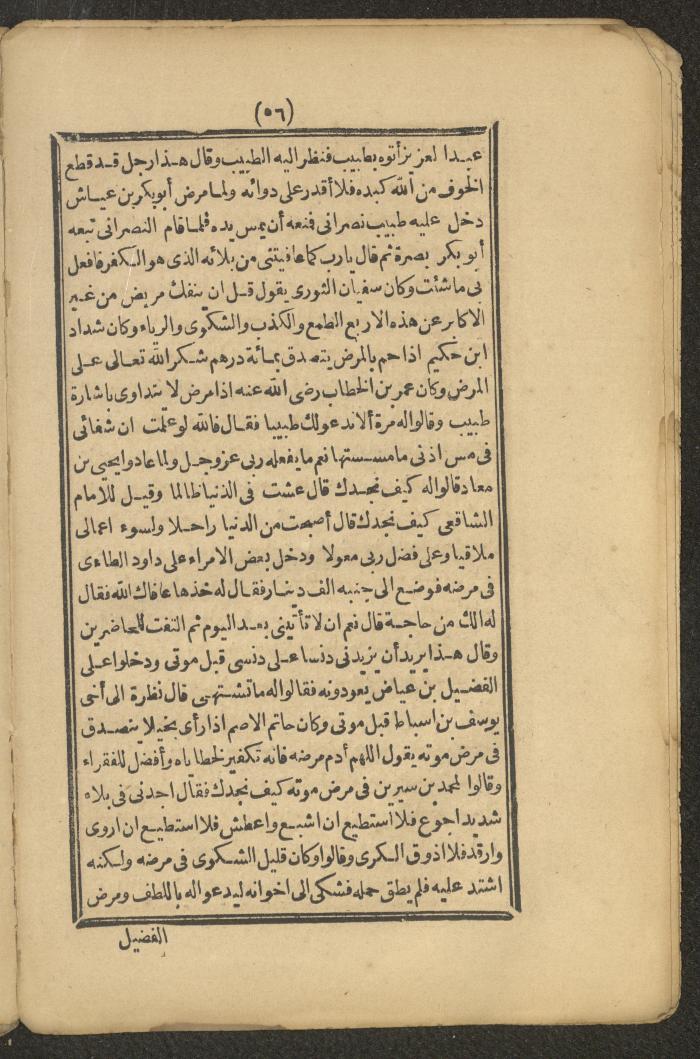 (٥٦)
عبدا لعزيز أتوه بطبيب فنظر اليه الطبيب وقال هذا رجل قد قطع
الخوف من الله كبده فلا أقدر على دوائه ولما مرض أبو بكر بن عياش
دخل عليه طبيب نصرانى فنعه أن يمس يده فلما قام النصرانى تبعه
أبو بكر بصرة ثم قال يارب كما عافيتنى من بلائه الذى هو الكفر فافعل
بى ما شئت وكان سفيان الثورى يقول قل ان ينفك مريض من غير
الاكابر عن هذه الاربع الطمع والكذب والشكوى والرياء وكان شداد
ابن حكيم اذا حم بالمرض يتصدق بمائة درهم شكر الله تعالى على
المرض وكان عمر بن الخطاب رضى الله عنه اذا مرض لا يتداوى باشارة
طبيب وقالواله مرة ألا ندعو لك طبيبا فقال فالله لو علمت ان شفائى
فى مس اذنى ما مسستها نعم ما يفعله ربى عز وجل ولما عادوا يحيى بن
معاذ قالواله كيف نجدك قال عشت فى الدنيا ظالما وقيل للامام
الشافعى كيف نجدك قال أصبحت من الدنيا راحلا ولسوء اعمالى
ملاقيا وعلى فضل ربى معولا ودخل بعض الامراء على داود الطاءى
فى مرضه فوضع الى جنبه الف دينار فقال له خذها عافاك الله فقال
له الك من حاجة قال نعم ان لا تأتينى بعد اليوم ثم التفت للحاضرين
وقال هذا يريد أن يزيدنى دنسا على دنسى قبل موتى ودخلوا على
الفضيل بن عياض يعودونه فقالواله ما تشتهى قال نظرة الى أخى
يوسف بن اسباط قبل موتى وكان حاتم الاصم اذا رأى بخيلا يتصدق
فى مرض موته يقول اللهم أدم مرضه فانه تكفير لخطاياه وأفضل للفقراء
وقالوا لمحمد بن سيرين فى مرض موته كيف نجدك فقال اجدنى فى بلاء
شديد اجوع فلا استطيع ان اشبع واعطش فلا استطيع ان اروى
وارقد فلا اذوق الكرى وقالوا وكان قليل الشكوى فى مرضه ولكنه
اشتد عليه فلم يطق حمله فشكى الى اخوانه ليدعواله باللطف ومرض
الفضيل